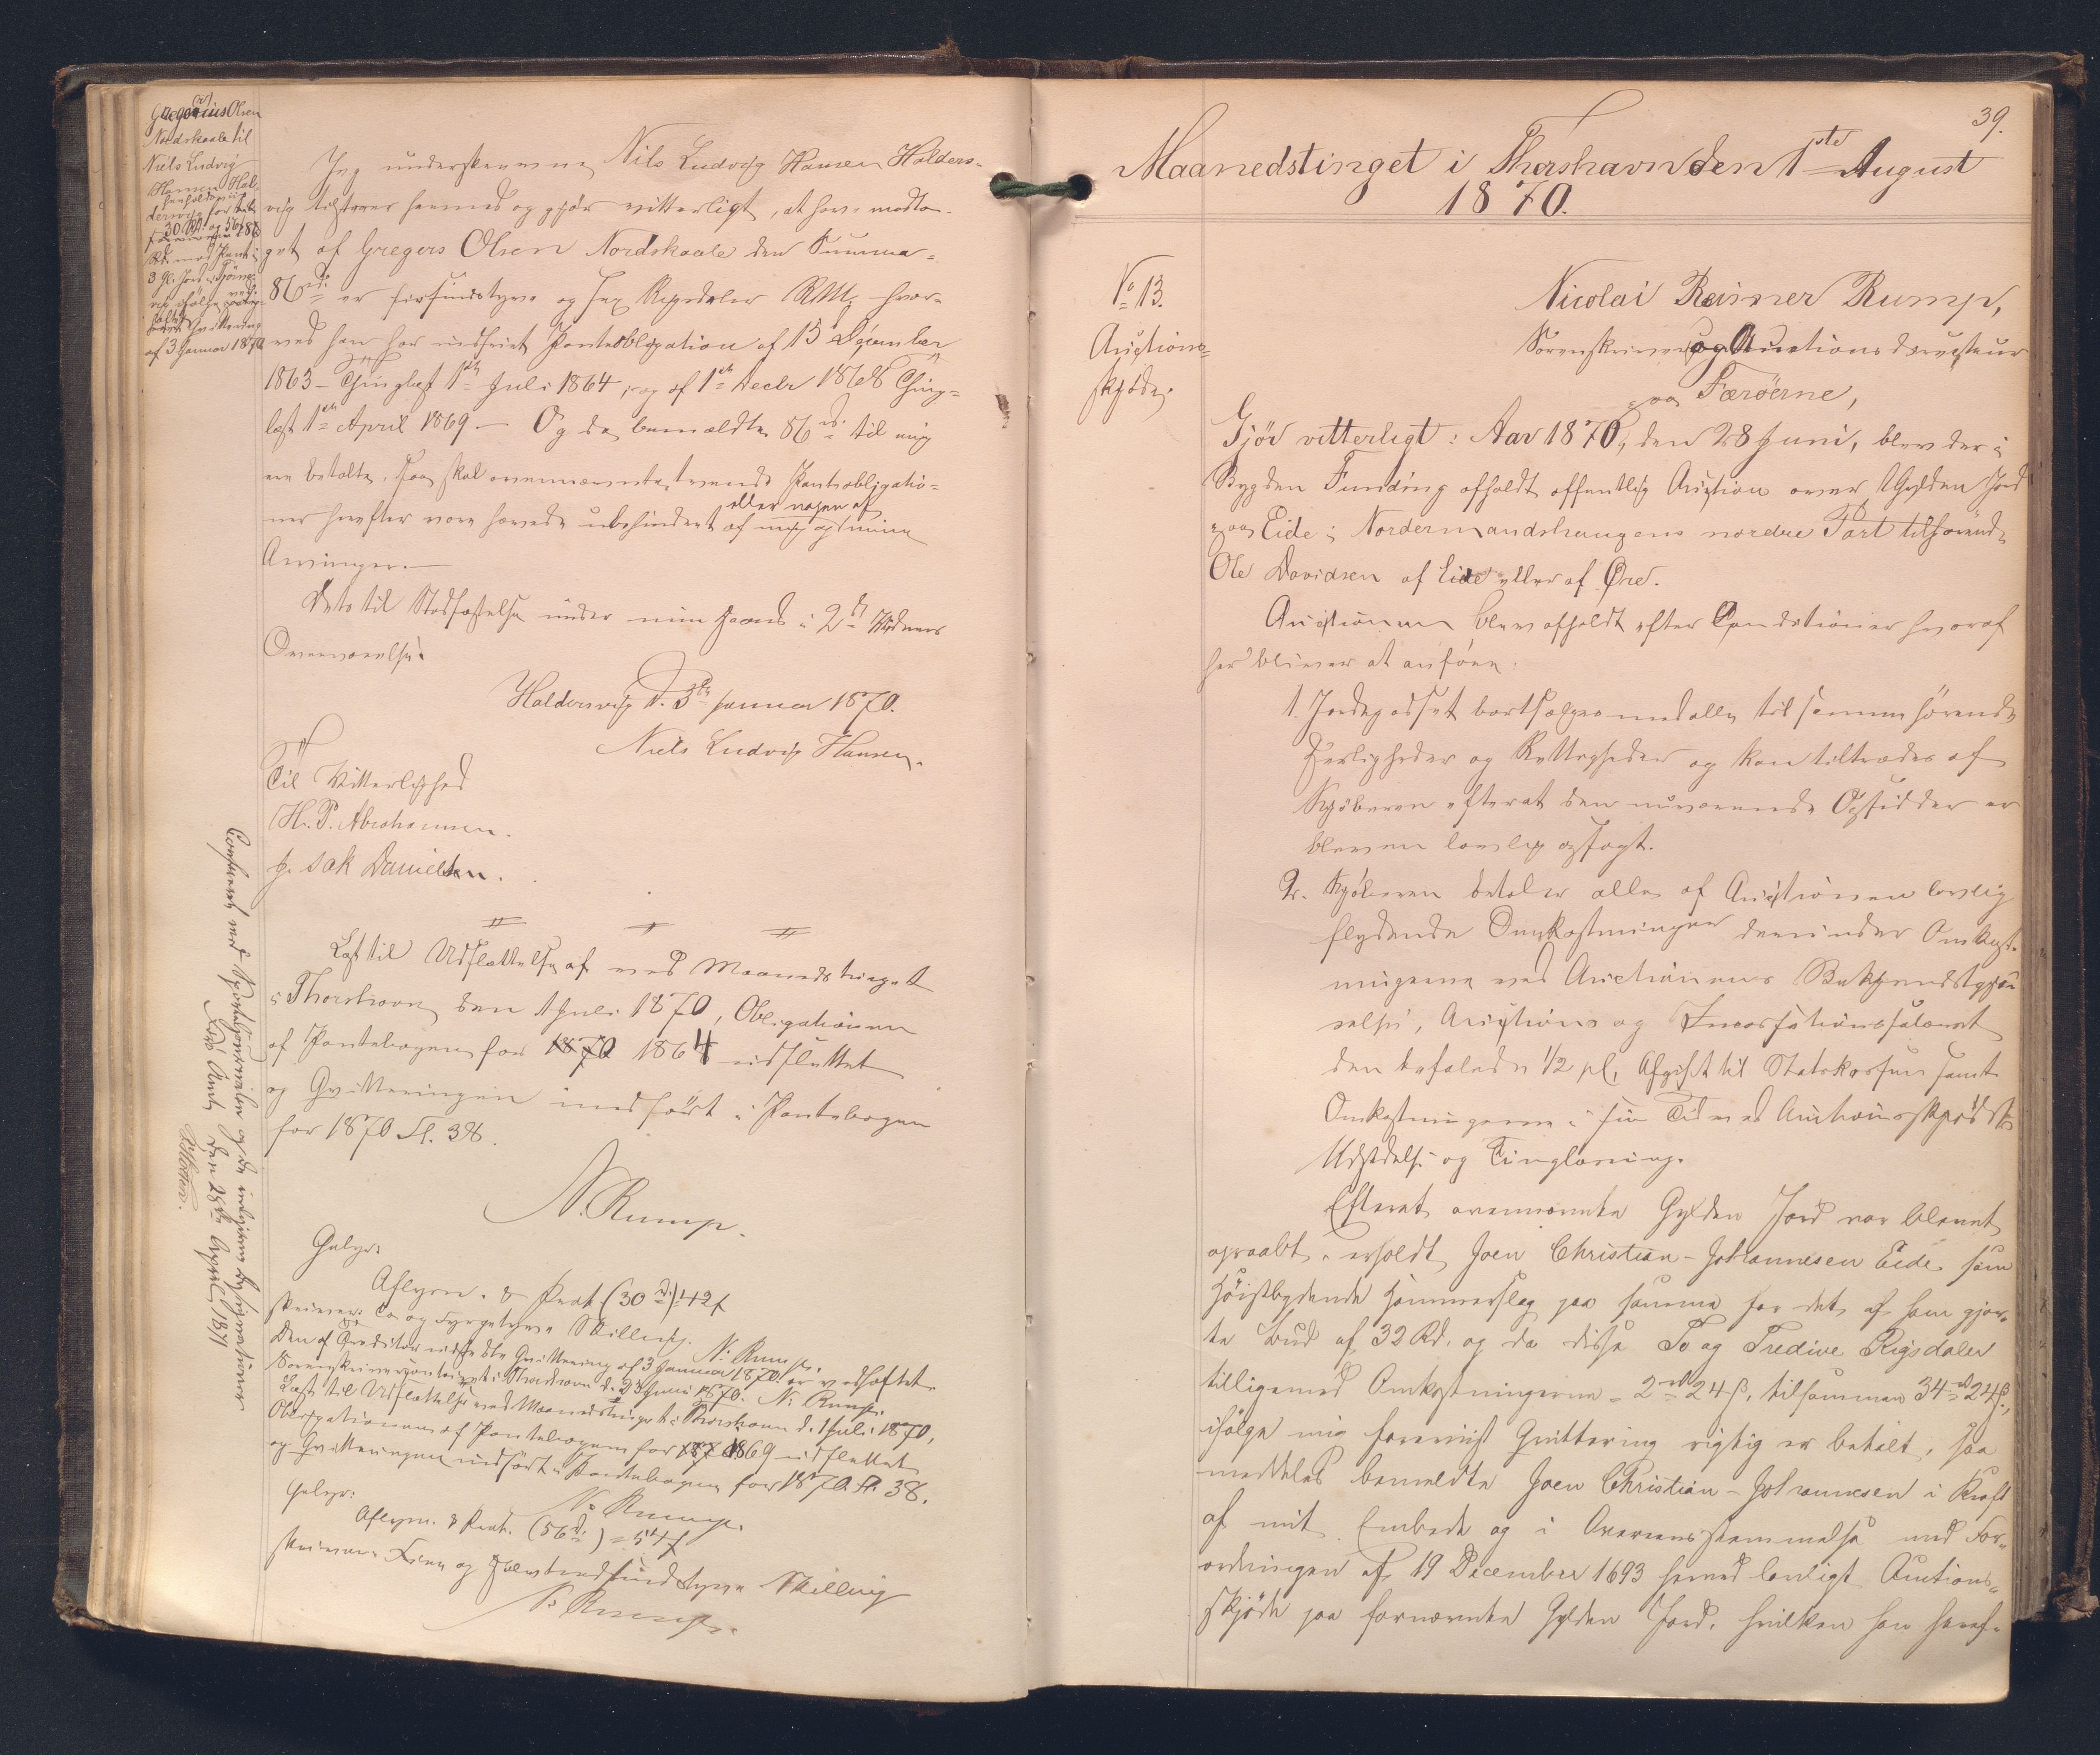 Gregorius Olsen
Nordskaale til
Niels Ludvig
Hansen Hal-
dersvig for
30 Rd. og 56 Rd.
Rd. mod Pant i
3 Gl. Jord
ifølge
Qvittering
af 3 Januar 1870
Jeg underskrevne Nils Ludvig Hansen Halders-
vig tilstaaer herved og gjör vitterligt, at have modta-
get af Gregers Olsen Nordskaale den Summa
86 rd. er firsindstyve og sex Rigsdaler RM, hvor-
ved han har indfriet Pantobligation af 15 December
1863 - Thinglæst 1ste Juli 1864, og af 1ste Decbr 1868 Thing-
læst 1ste April 1869 — Og da bemældte 86 rd. til mig
ere betalte, saa skal ovennævnte tvende Pantobligatio-
ner herefter være hævede ubehindret af mig eller nogen af mine
Arvinger.—
Dets til Stadfæstelse under min Haand i 2de Vidners
Overværelse.
Haldersvig d. 3de Januar 1870.
Niels Ludvig Hansen.
Til Vitterlighed
H. P. Abrahamsen.
J. sak Danielsen.
Læst til Udslettelse af ved Maanedstinget
i Thorshavn den 1 Juli 1870, Obligationen
af Pantebogen for 1870 1864 udslettet
og Qvitteringen indført i Pantebogen
for 1870 Fl. 38.
N. Rump.
Gebyr:
Aflæsn. & Prot. (30 rd.) 42 s
skriver To og Fyrgetyve Skilling. N. Rump.
Den af Creditor udstedte Qvittering af 3 Januar 1870 er vedhæftet.
Sorenskrivercontoiret i Thorshavn d. 23 Juni 1870. N. Rump.
Læst til Udslettelse ved Maanedstinget i Thorshavn d. 1 Juli 1870,
Obligationen af Pantebogen for 187 1869 udslettet
og Qvitteringen indført i Pantebogen for 1870 Fl. 38.
N. Rump.
Gebyr:
Aflæsn. & Prot. (56 rd.) = 54 s
skriver Fire og Halvtredsindstyve Skilling
N. Rump.
Confereret med
Færø Amt, den 28de April 1871
39.
Maanedstinget i Thorshavn den 1ste August
1870.
No 13.
Auctions-
skjøde.
Nicolai Reisner Rump,
Sorenskriver og Auctionsdirecteur
paa Færöerne,
Gjör vitterligt: Aar 1870, den 28 Juni, blev der i
Bygden Funding afholdt offentlig Auction over 1 Gylden Jord
paa Eide i Nordermandshaugens nordre Part tilhørende
Ole Davidsen af Eide eller af Øre.
Auctionen blev afholdt efter Conditioner hvoraf
her bliver at anföre:
1. Jordegodset bortsælges med alle tilsammenhörende
Herligheder og Rettigheder og kan tiltrædes af
Kjöberen efterat den nuværende Opsidder er
bleven lovlig opsagt.
2. Kjöberen betaler alle af Auctionen lovlig
flydende Omkostninger derunder Omkost-
ningerne ved Auctionens Bekjendtgjö-
relse, Auctions og Incassationssalairet
den befalede 1/2 pC. Afgift til Statskassen samt
Omkostningerne i sin Tid ved Auctionsskjödets
Udstedelse og Tinglæsning.
Efterat ovennævnte Gylden Jord var blevet
opraabt, erholdt Joen Christian Johannesen Eide som
Höistbydende Hammerslag paa samme for det af ham gjor-
te Bud af 32 Rd. og da disse To og Tredive Rigsdaler
tilligemed Omkostningerne = 2 rd 24 ß, tilsammen 34 rd 24 ß,
ifölge mig forevist Quittering rigtig er betalt, saa
meddeles bemeldte Joen Christian Johannesen i Kraft
af mit Embede og i Overensstemmelse med For-
ordningen af 19 December 1693 herved lovligt Auctions-
skjöde paa fornævnte Gylden Jord, hvilken han heref-